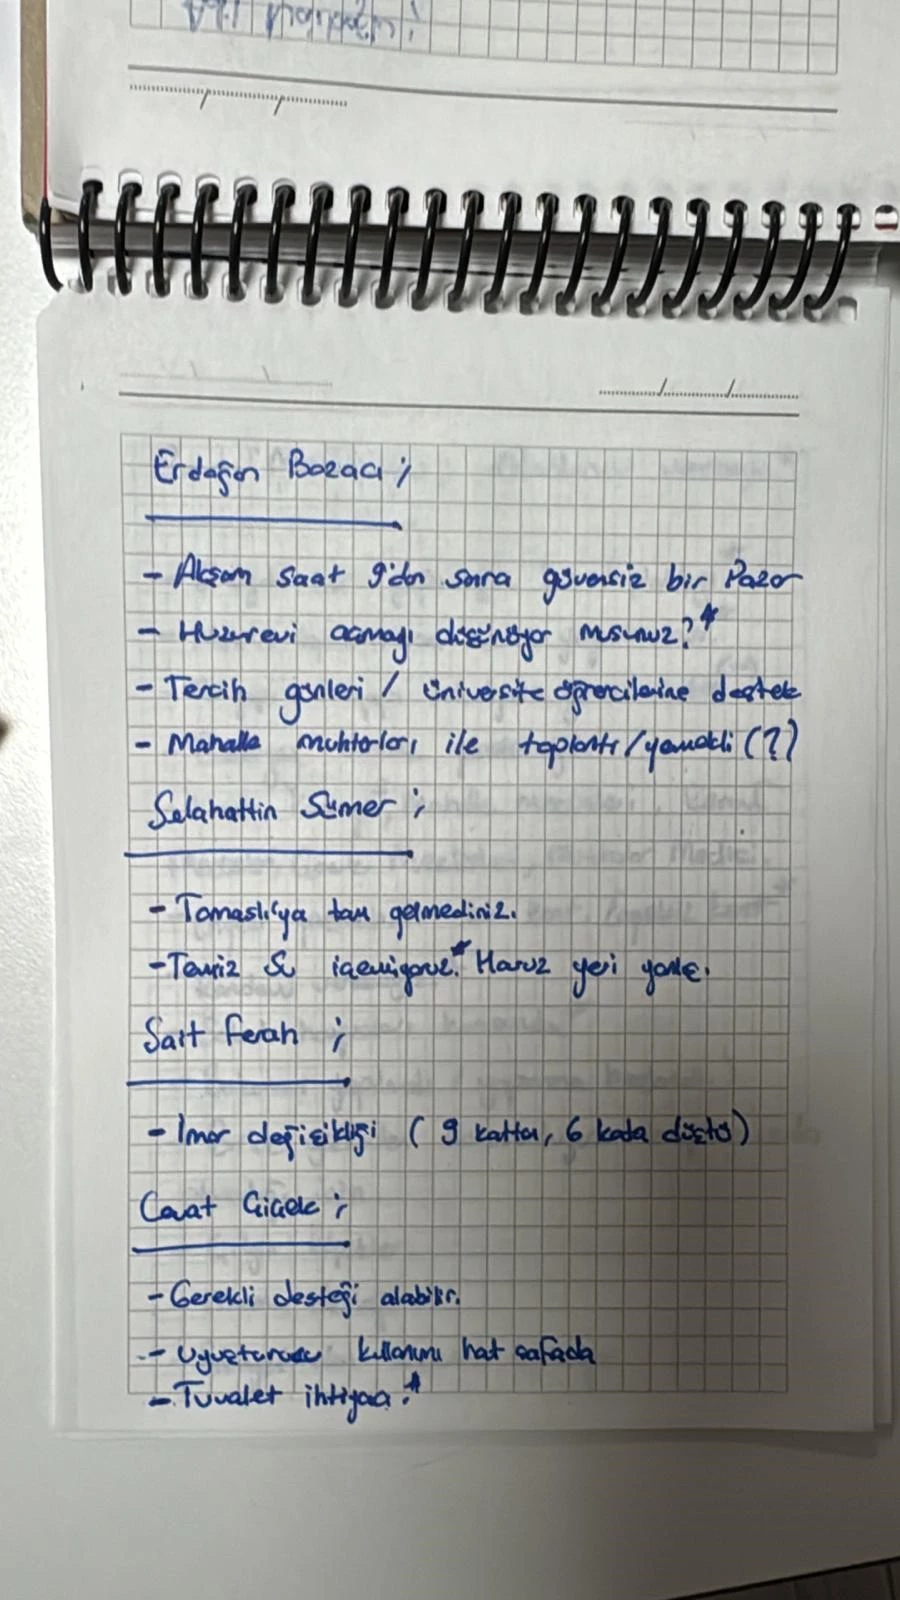 Erdoğan Bozacı ;
- Akşam saat 9'dan sonra güvensiz bir Pazar
- Huzurevi açmayı düşünüyor musunuz?*
- Tercih günleri / üniversite öğrencilerine destek
- Mahalle muhtarları ile toplantı/yemekli (?)
Selahattin Sümer ;
- Tomaslı'ya tam gelmediniz.
- Temiz su içemiyoruz.* Havuz yeri yanlış.
Sait Ferah ;
- İmar değişikliği ( 9 kattan, 6 kata düştü)
Cevat Çiçek ;
- Gerekli desteği alabilir.
- Uyuşturucu kullanımı hat safada
- Tuvalet ihtiyacı.*